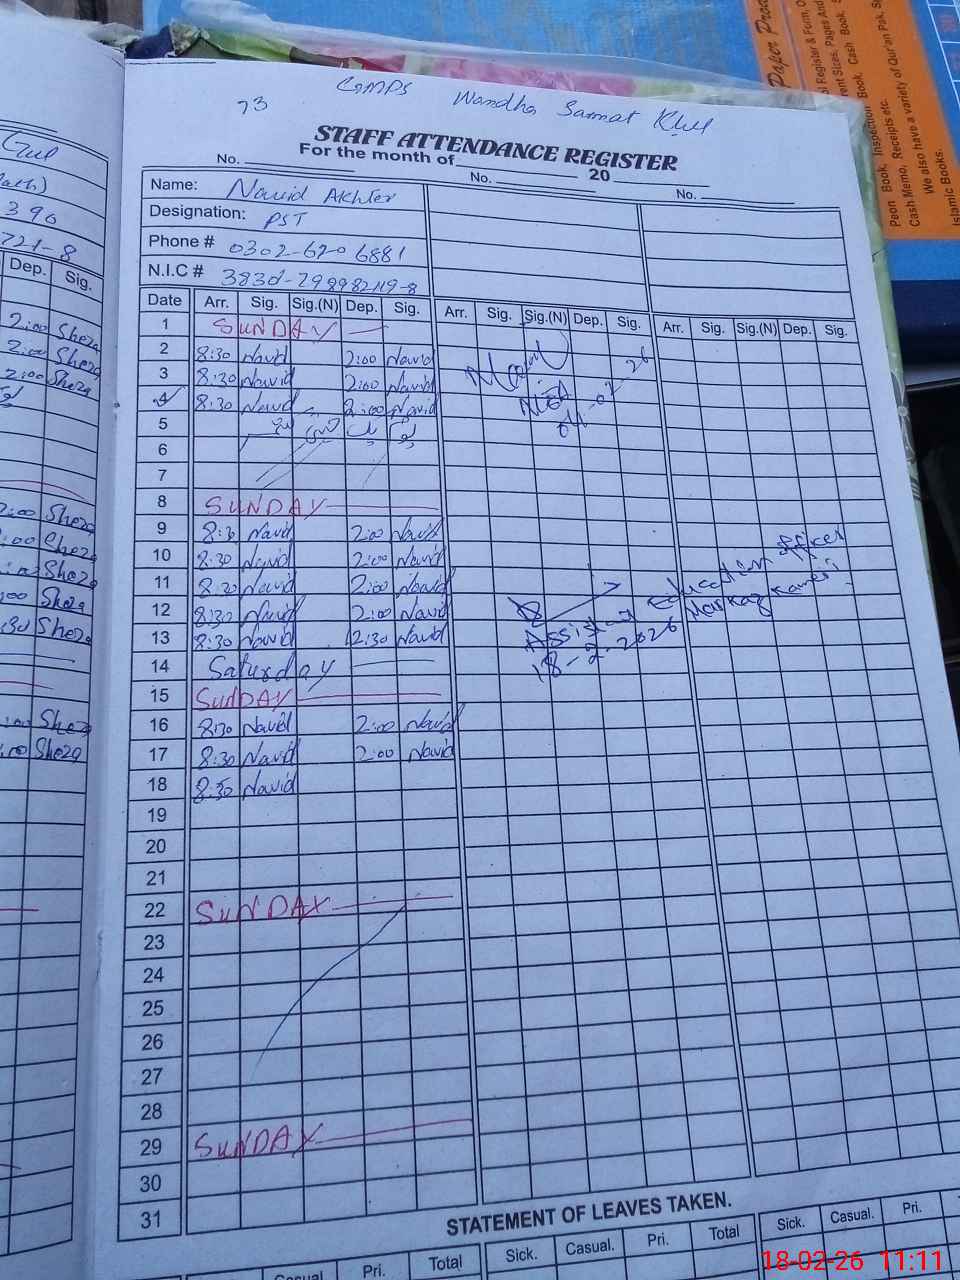 73 GMPS Wandha Sarmat Khel
STAFF ATTENDANCE REGISTER
For the month of
No. No. 20 No.
Name: Navid Akhter
Designation: PST
Phone # 0302-620 6881
N.I.C #
Date Arr. Sig. Sig.(N) Dep. Sig. Arr. Sig. Sig.(N) Dep. Sig. Arr. Sig. Sig.(N) Dep. Sig.
1 SUNDAY
2 8:30 Navid 2:00 Navid
3 8:30 Navid 2:00 Navid
4 8:30 Navid 2:00 Navid
5
6
7
8 SUNDAY
9 8:30 Navid 2:00 Navid
10 8:30 Navid 2:00 Navid
11 8:30 Navid 2:00 Navid
12 8:30 Navid 2:00 Navid
13 8:30 Navid 12:30 Navid
14 Saturday
15 SUNDAY
16 8:30 Navid 2:00 Navid
17 8:30 Navid 2:00 Navid
18 8:30 Navid
19
20
21
22 SUNDAY
23
24
25
26
27
28
29 SUNDAY
30
31
04-02-26
Assistant Education Officer
Markaz
18-2-2026
STATEMENT OF LEAVES TAKEN.
Casual. Pri. Total Sick. Casual. Pri. Total Sick. Casual. Pri.
Gul
396
721-8
Dep. Sig.
2:00 Sheza
2:00 Sheza
2:00 Sheza
2:00 Sheza
:00 Sheza
Sheza
:00 Sheza
:30 Sheza
:00 Sheza
:00 Sheza
Paper Prod
l Register & Form, O
rent Sizes, Pages And
Book, Cash Book, S
Peon Book, Inspection
Cash Memo, Receipts etc.
We also have a variety of Qur'an Pak, S
Islamic Books.
18-02-26 11:11